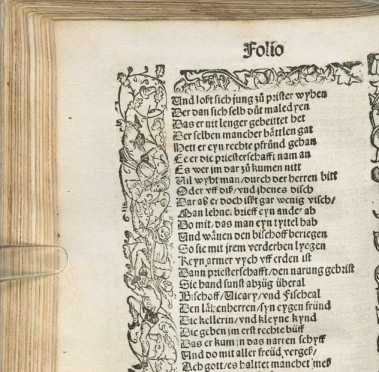 Folio
Und loßt sich jung zů priester wyhen
Der dan sich selb důt maledyen
Das er nit lenger gebeittet het
Der selben mancher bättlen gat
Hett er eyn rechte pfründ gehan
Ee er die priesterschafft nam an
Es wer im dar zů kumen nitt
Vil wyht man/durch der herren bitt
Oder vff diß/vnd jhenes disch
Dar ab er doch ißt gar wenig visch/
Man lehnt brieff eyn ander ab
Do mit/das man eyn tyttel hab
Und wänen den bischoff betriegen
So sie mit jrem verderben lyegen
Keyn armer vych vff erden ist
Dann priesterschafft/den narung gebrist
Sie hand sunst abzüg überal
Bischoff/Vicary/vnd Fischcal
Den låhenherren/syn eygen fründ
Die kellerin/vnd kleyne kynd
Die geben im erst rechte büff
Das er kum in das narren schyff
Und do mit aller freüd vergeß/
Ach gott/es haltet mancher meß